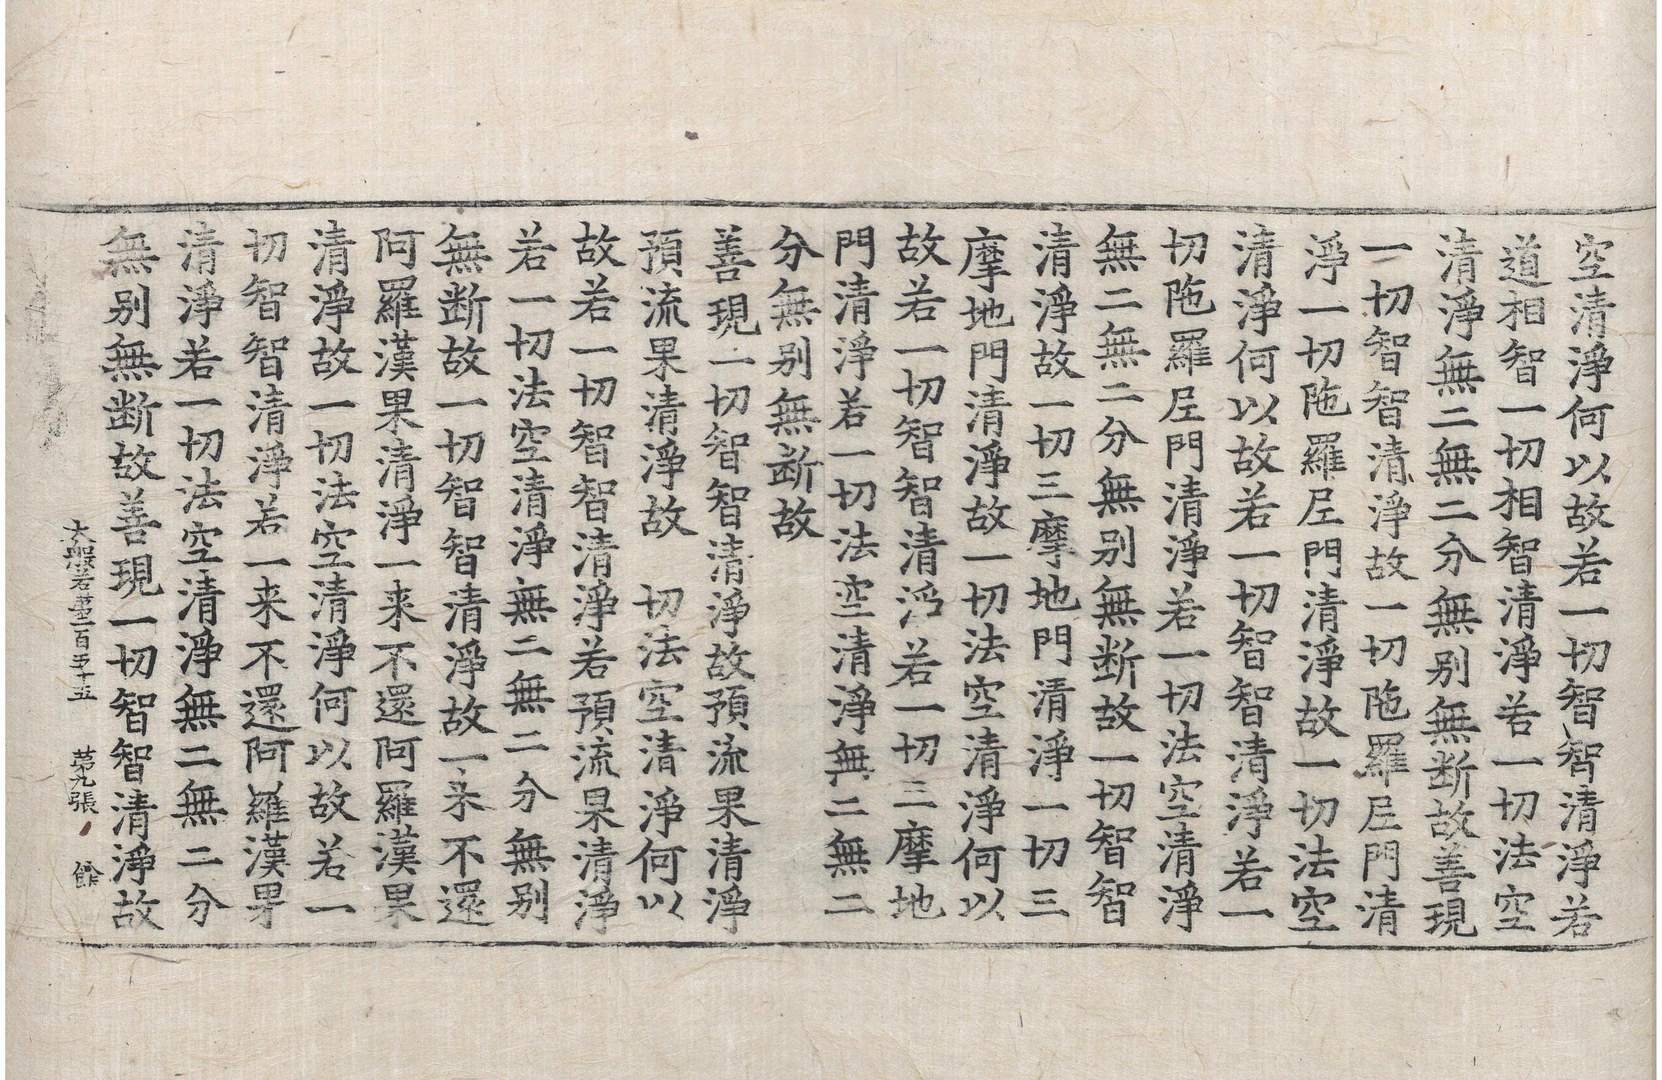 空清淨何以故若一切智智清淨若
道相智一切相智清淨若一切法空
清淨無二無二分無别無断故善現
一切智智清淨故一切陁羅尼門清
淨一切陁羅尼門清淨故一切法空
清淨何以故若一切智智清淨若一
切陁羅尼門清淨若一切法空清淨
無二無二分無别無断故一切智智
清淨故一切三摩地門清淨一切三
摩地門清淨故一切法空清淨何以
故若一切智智清淨若一切三摩地
門清淨若一切法空清淨無二無二
分無别無断故
善現一切智智清淨故預流果清淨
預流果清淨故 切法空清淨何以
故若一切智智清淨若預流果清淨
若一切法空清淨無二無二分無别
無断故一切智智清淨故一来不還
阿羅漢果清淨一来不還阿羅漢果
清淨故一切法空清淨何以故若一
切智智清淨若一来不還阿羅漢果
清淨若一切法空清淨無二無二分
無别無断故善現一切智智清淨故
大般若二百五十五 第九張 餘